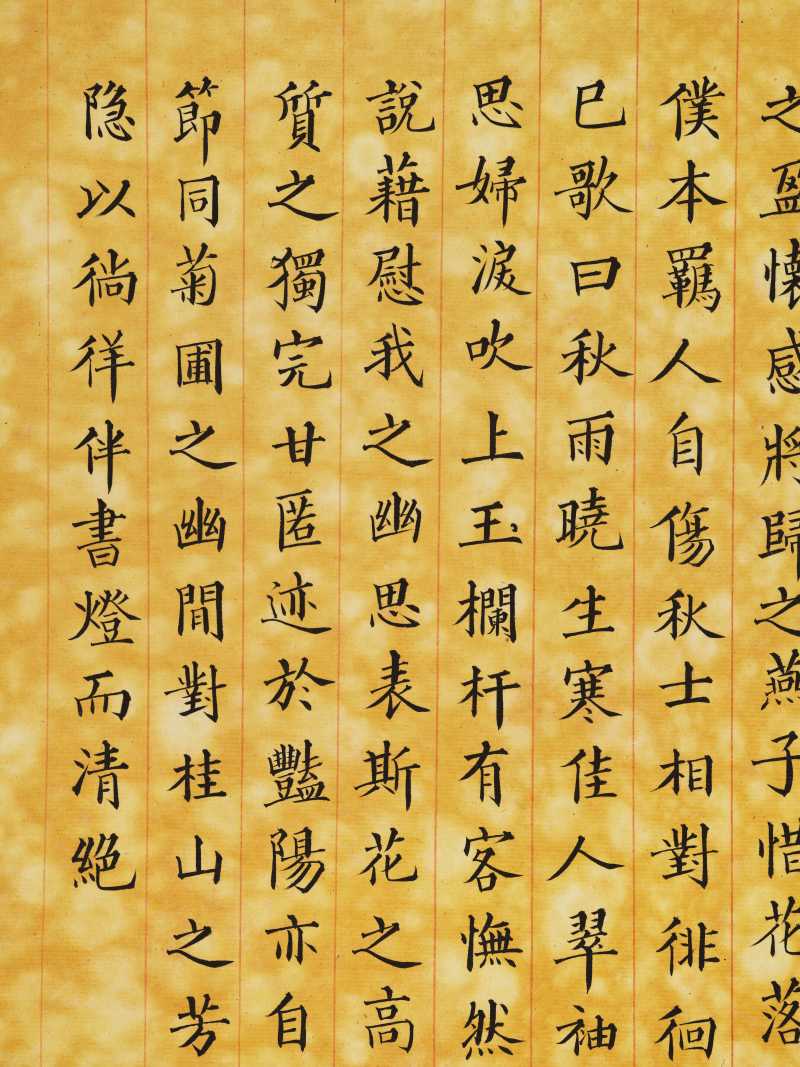 之盈懷感將歸之燕子惜花落
僕本羈人自傷秋士相對徘徊
已歌曰秋雨曉生寒佳人翠袖
思婦淚吹上玉欄杆有客憮然
說藉慰我之幽思表斯花之高
質之獨完甘匿迹於豔陽亦自
節同菊圃之幽閒對桂山之芳
隐以徜徉伴書燈而清絕